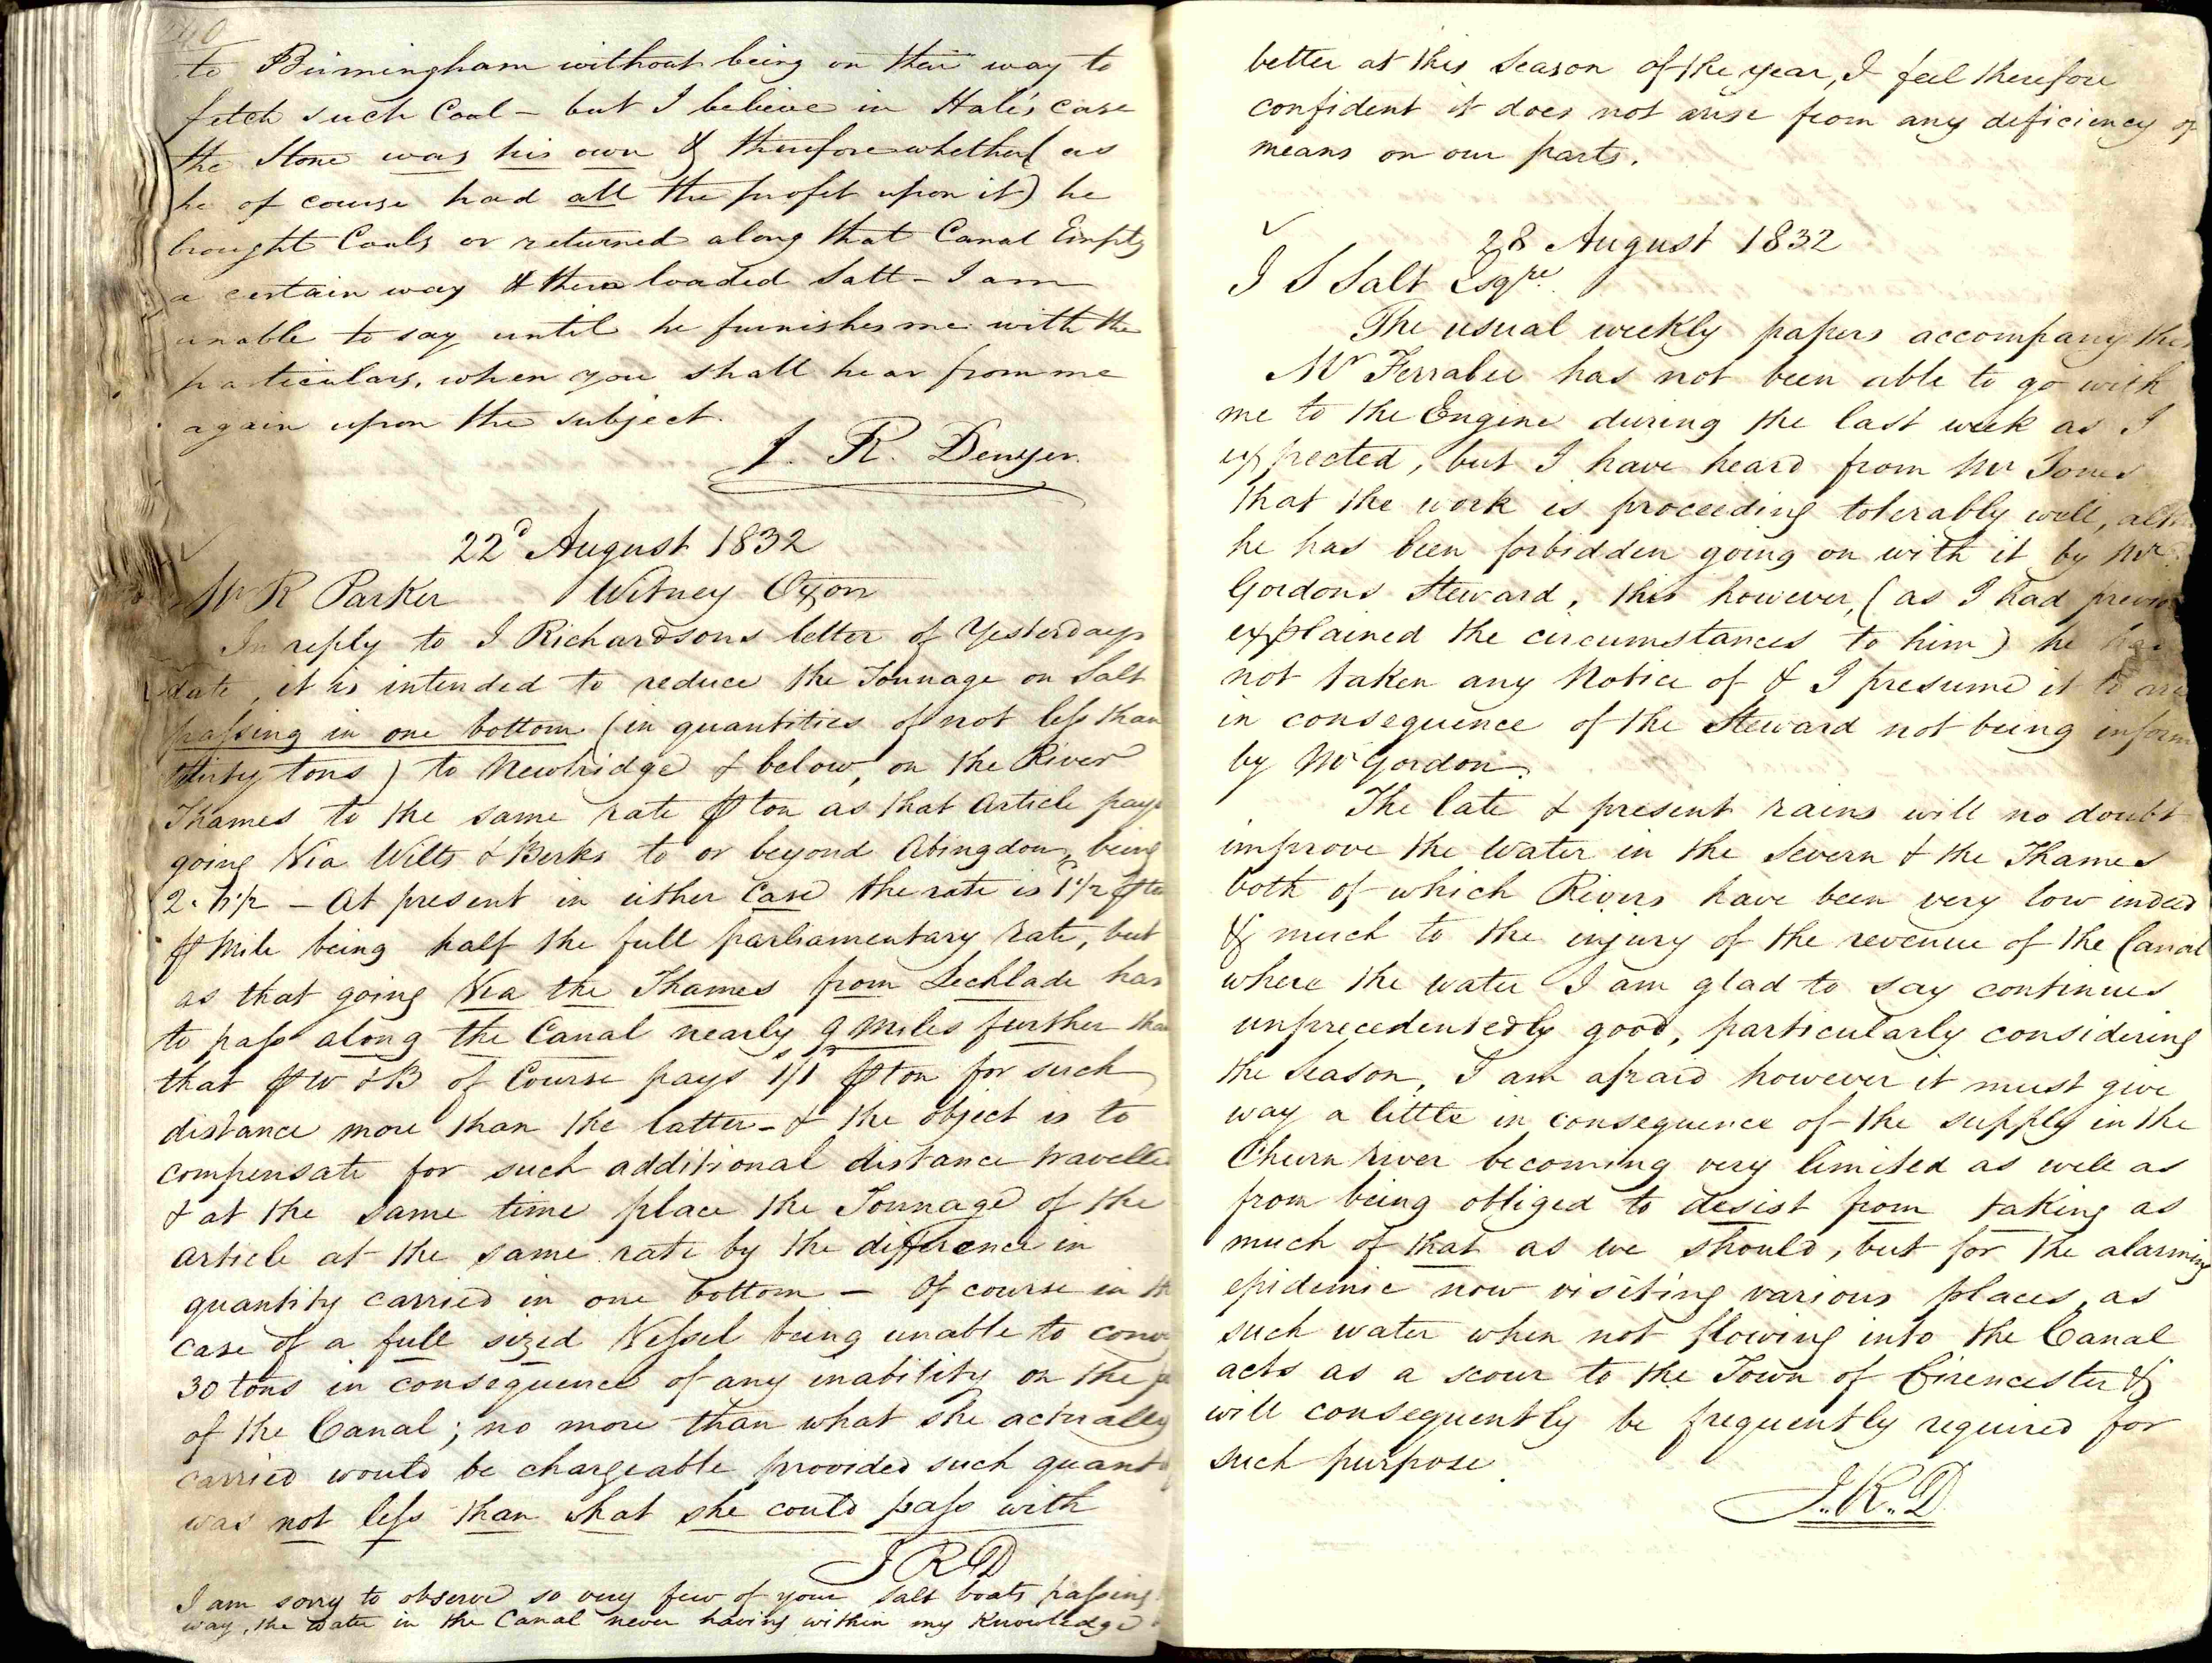 to Birmingham without being on their way to
fetch such Coal – but I believe in Hale's case
the Stone was his own & therefore whether (as
he of course had all the profit upon it) he
brought Coals or returned along that Canal Empty
a certain way & then loaded Salt – I am
unable to say until he furnishes me with the
particulars, when you shall hear from me
again upon the subject.
J. R. Denyer.
22d August 1832
Mr R Parker Witney Oxon
In reply to J Richardsons letter of Yesterdays
date, it is intended to reduce the Tonnage on Salt
passing in one bottom (in quantities of not less than
thirty tons) to Newbridge & below, on the River
Thames to the same rate ⅌ ton as that Article pays
going Via Wilts & Berks to or beyond Abingdon, being
2. – At present in either Case the rate is 1½ ⅌ ton
⅌ Mile being half the full parliamentary rate, but
as that going Via the Thames from Lechlade has
to pass along the Canal nearly 9 Miles further than
that ⅌ W & B of Course pays 1/1 ⅌ ton for such
distance more than the latter – & the object is to
compensate for such additional distance travelled
& at the same time place the Tonnage of the
article at the same rate by the difference in
quantity carried in one bottom – Of course in the
case of a full sized Vessel being unable to convey
30 tons in consequence of any inability on the
of the Canal; no more than what she actually
carried would be chargeable provided such quantity
was not less than what she could pass with
JRD
I am sorry to observe so very few of your Salt boats passing
way, the water in the Canal never having within my Knowledge
better at this Season of the year, I feel therefore
confident it does not arise from any deficiency of
means on our parts.
28 August 1832
J S Salt Esqre.
The usual weekly papers accompany this
Mr Ferrabee has not been able to go with
me to the Engine during the last week as I
expected, but I have heard from Mr Jones
that the work is proceeding tolerably well, altho
he has been forbidden going on with it by Mr
Gordons Steward, this however, (as I had
explained the circumstances to him) he has
not taken any Notice of & I presume it to
in consequence of the Steward not being
by Mr Gordon.
The late & present rains will no doubt
improve the Water in the Severn & the Thames
both of which Rivers have been very low indeed
& much to the injury of the revenue of the Canal
where the water I am glad to say continues
unprecedentedly good, particularly considering
the Season, I am afraid however it must give
way a little in consequence of the supply in the
Churn river becoming very limited as well as
from being obliged to desist from taking as
much of that as we should, but for the alarming
epidemic now visiting various places, as
such water when not flowing into the Canal
acts as a scour to the Town of Cirencester &
will consequently be frequently required for
such purpose.
J.R.D